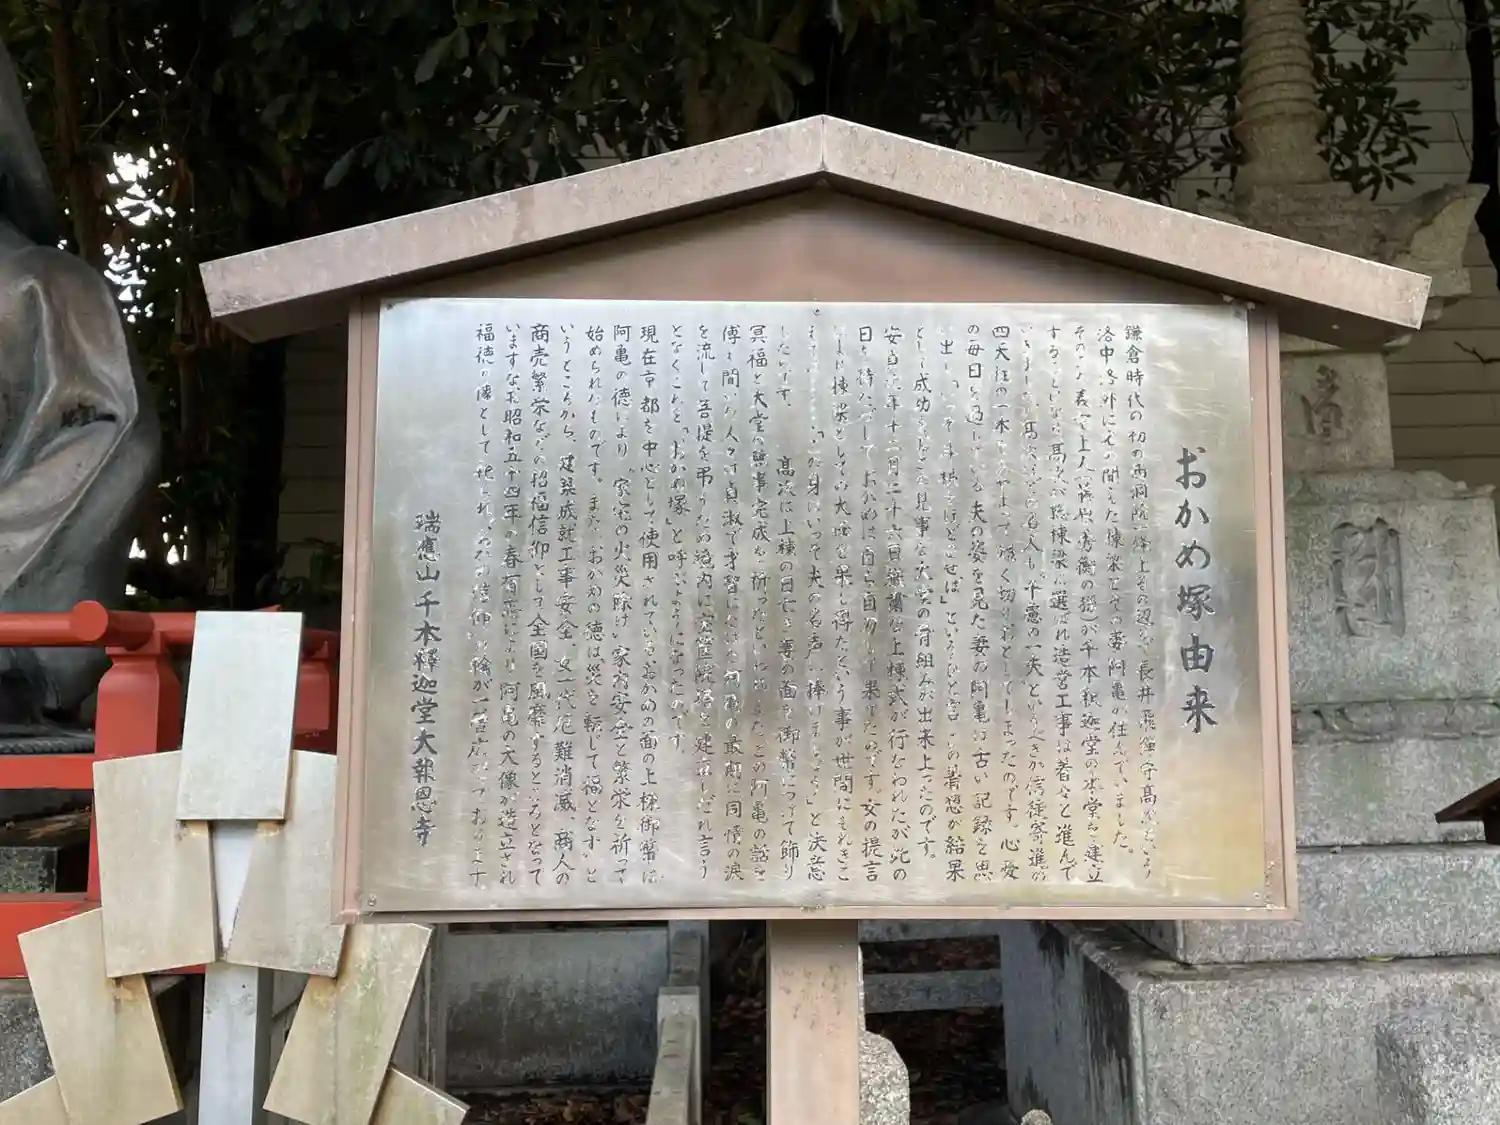 おかめ塚由来
鎌倉時代の初め西洞院一条上るの辺りに長井飛騨守高次という
洛中洛外に名の聞えた棟梁とその妻阿亀が住んでいました。
そのころ義空上人(藤原秀衡の孫)が千本釈迦堂の本堂を建立
することになり高次が総棟梁に選ばれ造営工事は着々と進んで
いきましたが高次ほどの名人も"千慮の一失"というべきか信徒寄進の
四天柱の一本をあやまって短く切りおとしてしまったのです。心憂
の毎日を過している夫の姿を見た妻の阿亀は古い記録を思
い出し「いっそ斗栱をほどこせば」というひと言、この着想が結果
として成功をおさめ見事な大堂の骨組みが出来上ったのです。
安貞元年十二月二十六日厳粛な上棟式が行なわれたが此の
日を待たずしておかめは自ら自刃して果てたのです。女の提言
により棟梁としての大任を果し得たという事が世間にもれきこ
えては‥‥「この身はいって夫の名声に捧げましょう」と決意
したのです。 高次は上棟の日亡き妻の面を御幣につけて飾り
冥福と大堂の無事完成を祈ったといわれ、またこの阿亀の話を
傳え聞いた人々は貞淑で才智にたけた阿亀の最期に同情の涙
を流して菩提を弔うため境内に宝篋院塔を建立しだれ言う
となくこれを「おかめ塚」と呼ぶようになったのです。
現在京都を中心として使用されているおかめの面の上棟御幣は
阿亀の徳により"家宅の火災除け"家内安全と繁栄を祈って
始められたものです。また、おかめの徳は災を転じて福となすと
いうところから、建築成就工事安全、女一代厄難消滅、商人の
商売繁栄などの招福信仰として全国を風靡するところとなって
いますなお昭和五十四年の春有志により阿亀の大像が造立され
福徳の像として祀られ"おかめ信仰"の輪が一層広がっております
瑞應山千本釋迦堂大報恩寺